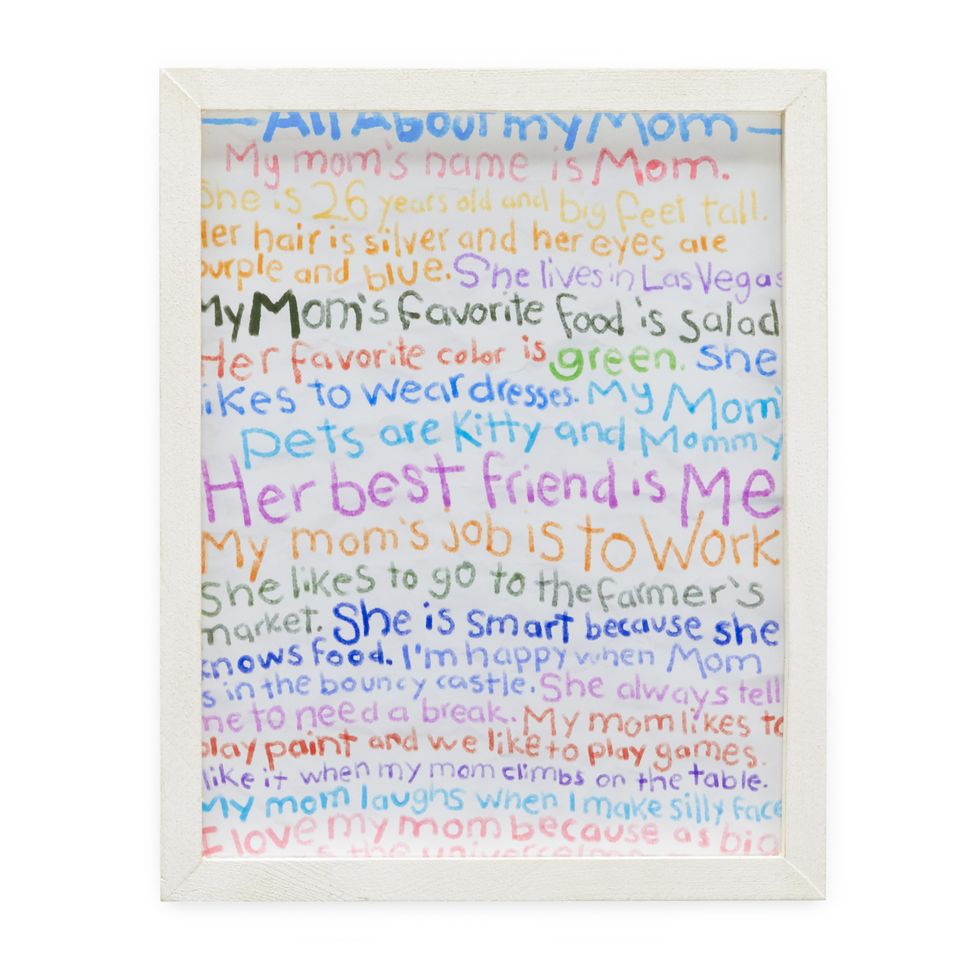 All About my Mom
My mom's name is Mom.
She is 26 years old and big feet tall.
Her hair is silver and her eyes are
purple and blue. She lives in Las Vegas
My Mom's favorite food is salad
Her favorite color is green. She
likes to wear dresses. My Mom'
pets are Kitty and Mommy
Her best friend is Me
My mom's job is to Work
She likes to go to the farmer's
market. She is smart because she
knows food. I'm happy when Mom
is in the bouncy castle. She always tell
me to need a break. My mom likes to
play paint and we like to play games.
like it when my mom climbs on the table.
My mom laughs when I make silly face
I love my mom because as big
is the